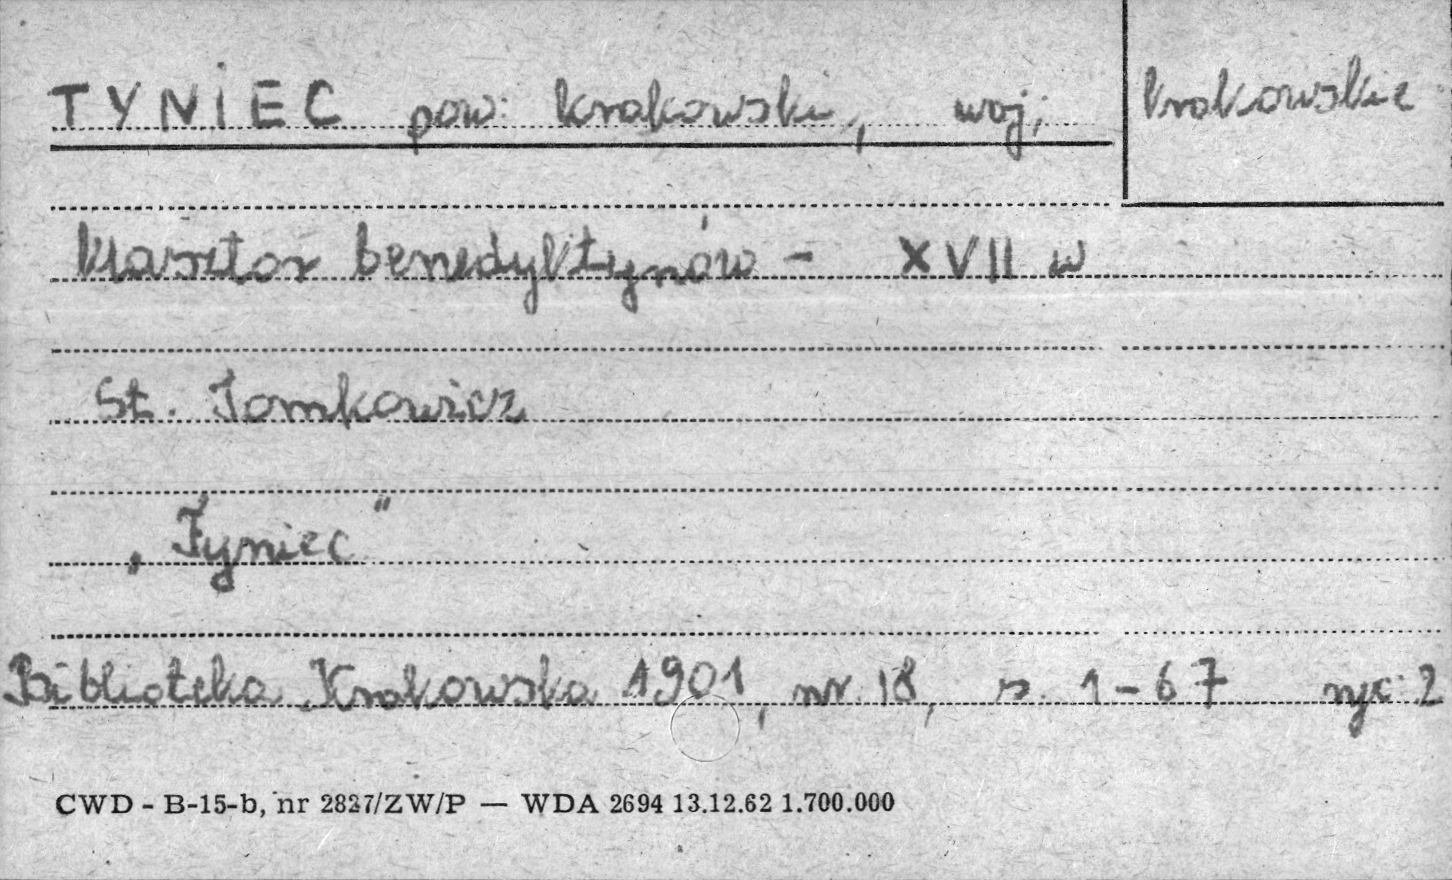 TYNIEC pow. krakowski, woj. krakowskie
klasztor benedyktynów - XVII w
St. Tomkowicz
„Tyniec"
Biblioteka Krakowska 1901, nr. 18, s. 1-67 ryc. 2
CWD - B-15-b, nr 2827/ZW/P — WDA 2694 13.12.62 1.700.000